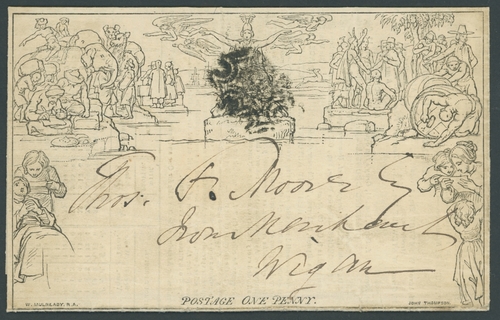 Thos. F. Moore Esq
Iron Merchant
Wigan
POSTAGE ONE PENNY.
W. MULREADY. R.A.
JOHN THOMPSON